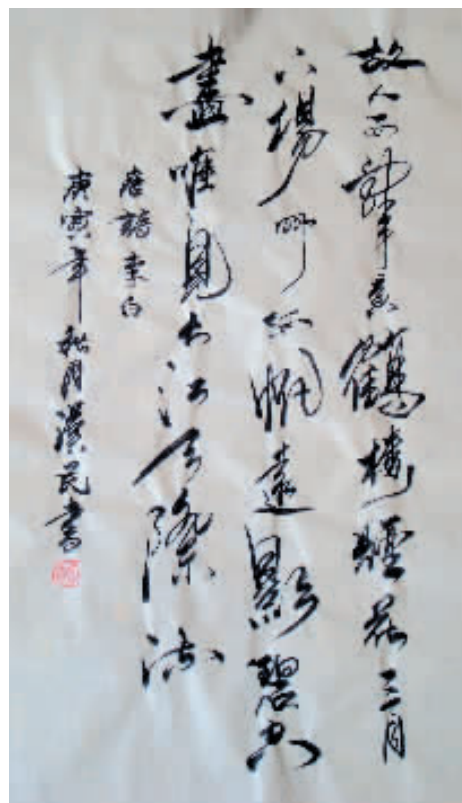 故人西辭黃鶴樓煙花三月
下揚州孤帆遠影碧空
盡唯見长江天際流
唐詩李白
庚寅年秋月漢民書